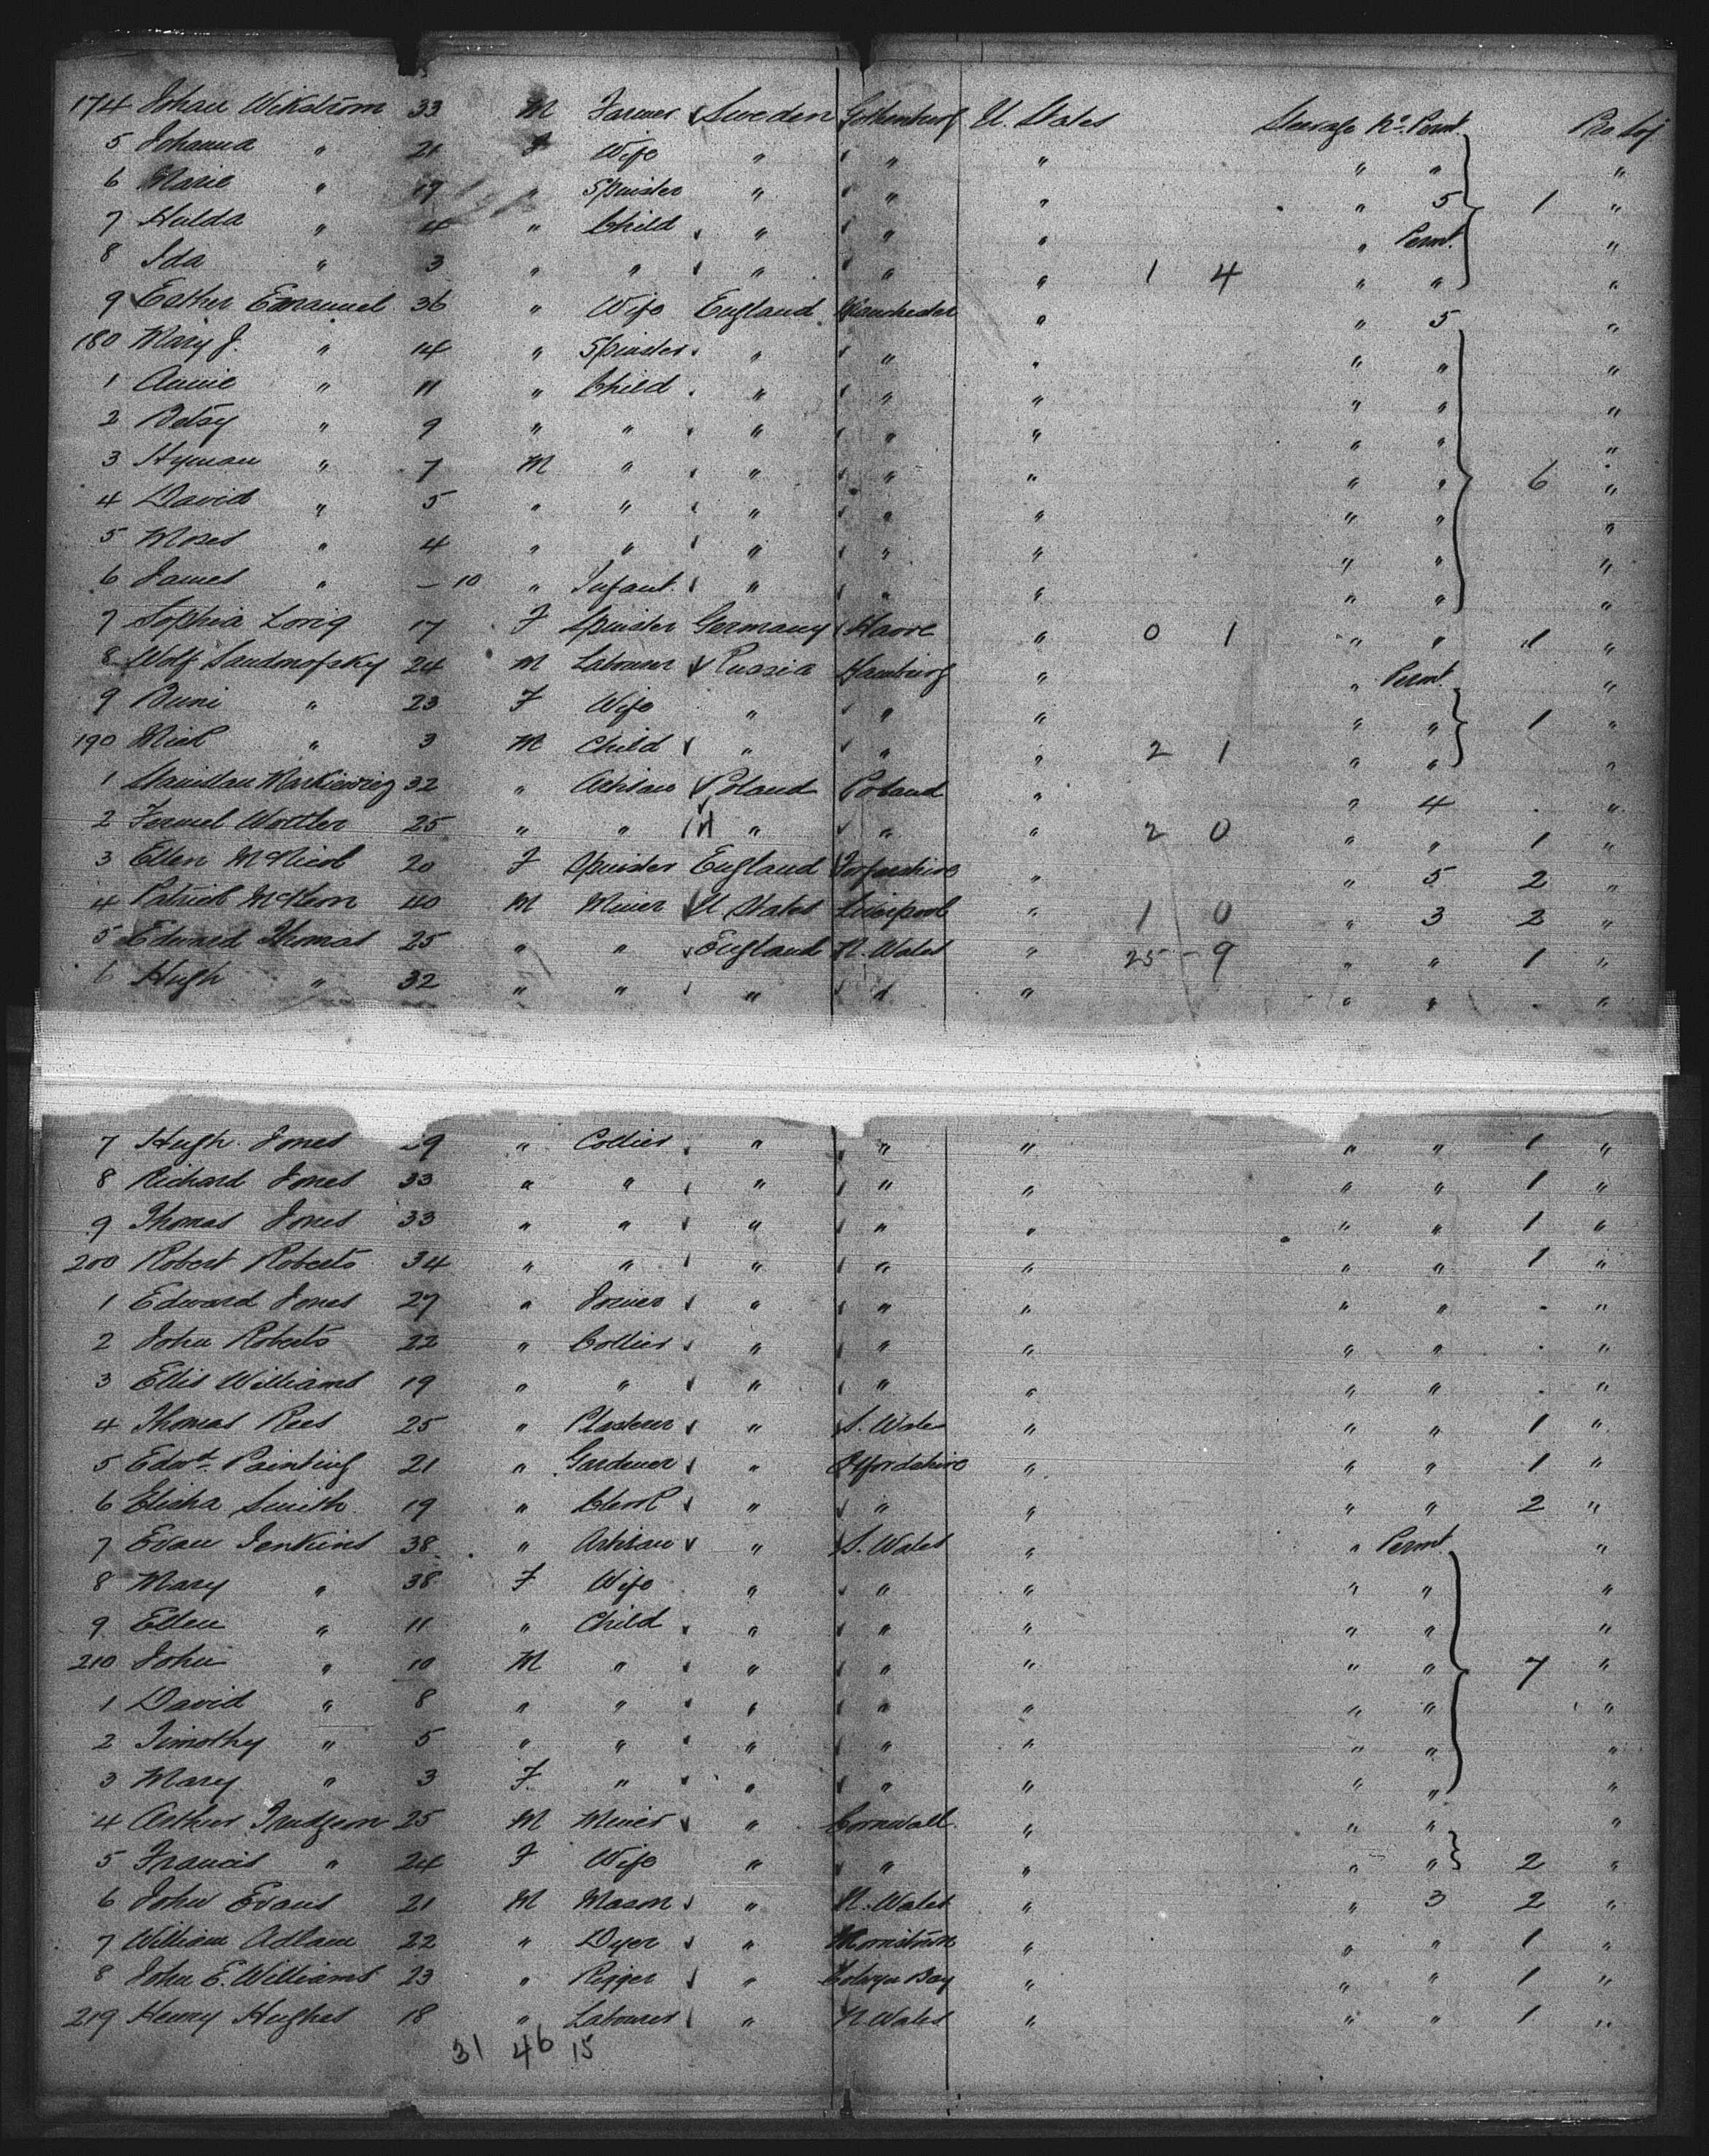 174 Johan Wikstrom 33 M Farmer Sweden Gothenburg U. States Steerage No. Permt. Pro Soj
5 Johanna " 21 F Wife " " " " " "
6 Marie " 19 " Spinster " " " " 5 1 "
7 Hulda " 4 " Child " " " " Permt. "
8 Ida " 3 " " " " " 1 4 " " "
9 Esther Emanuel 36 " Wife England Manchester " " 5 "
180 Mary J. " 14 " Spinster " " " " " "
1 Annie " 11 " Child " " " " " "
2 Betsy " 9 " " " " " " " "
3 Hyman " 7 M " " " " " " 6 "
4 David " 5 " " " " " " " "
5 Moses " 4 " " " " " " " "
6 James " - 10 " Infant " " " " " "
7 Sophia Lorig 17 F Spinster Germany Havre " 0 1 " " 1 "
8 Wolf 24 M Labourer Russia Hamburg " " Permt. "
9 " 23 F Wife " " " " " 1 "
190 " 3 M Child " " " 2 1 " " "
1 Stanislau 32 " Artisan Poland Poland " " 4 . "
2 25 " " " " " 2 0 " " 1 "
3 Ellen McNicol 20 F Spinster England Forfarshire " " 5 2 "
4 Patrick McKeon 40 M Miner U. States Liverpool " 1 0 " 3 2 "
5 Edward Thomas 25 " " England N. Wales " 25 - 9 " " 1 "
6 Hugh " 32 " " " " " " " . "
7 Hugh Jones 29 " Collier " " " " " 1 "
8 Richard Jones 33 " " " " " " " 1 "
9 Thomas Jones 33 " " " " " " " 1 "
200 Robert Roberts 34 " " " " " " " 1 "
1 Edward Jones 27 " Joiner " " " " " . "
2 John Roberts 22 " Collier " " " " " . "
3 Ellis Williams 19 " " " " " " " . "
4 Thomas Rees 25 " Plasterer " S. Wales " " " 1 "
5 Edwd. Painting 21 " Gardener " Oxfordshire " " " 1 "
6 Elisha Smith 19 " Clerk " " " " " 2 "
7 Evan Jenkins 38 " Artisan " S. Wales " " Permt. "
8 Mary " 38 F Wife " " " " " "
9 Ellen " 11 " Child " " " " " "
210 John " 10 M " " " " " " 7 "
1 David " 8 " " " " " " " "
2 Timothy " 5 " " " " " " " "
3 Mary " 3 F " " " " " " "
4 Arthur Trudgeon 25 M Miner " Cornwall " " " "
5 Francis " 24 F Wife " " " " " 2 "
6 John Evans 21 M Mason " N. Wales " " 3 2 "
7 William Adlam 22 " Dyer " " " " 1 "
8 John E. Williams 23 " Rigger " Colwyn Bay " " " 1 "
219 Henry Hughes 18 " Labourer " N Wales " " " 1 "
31 46 15